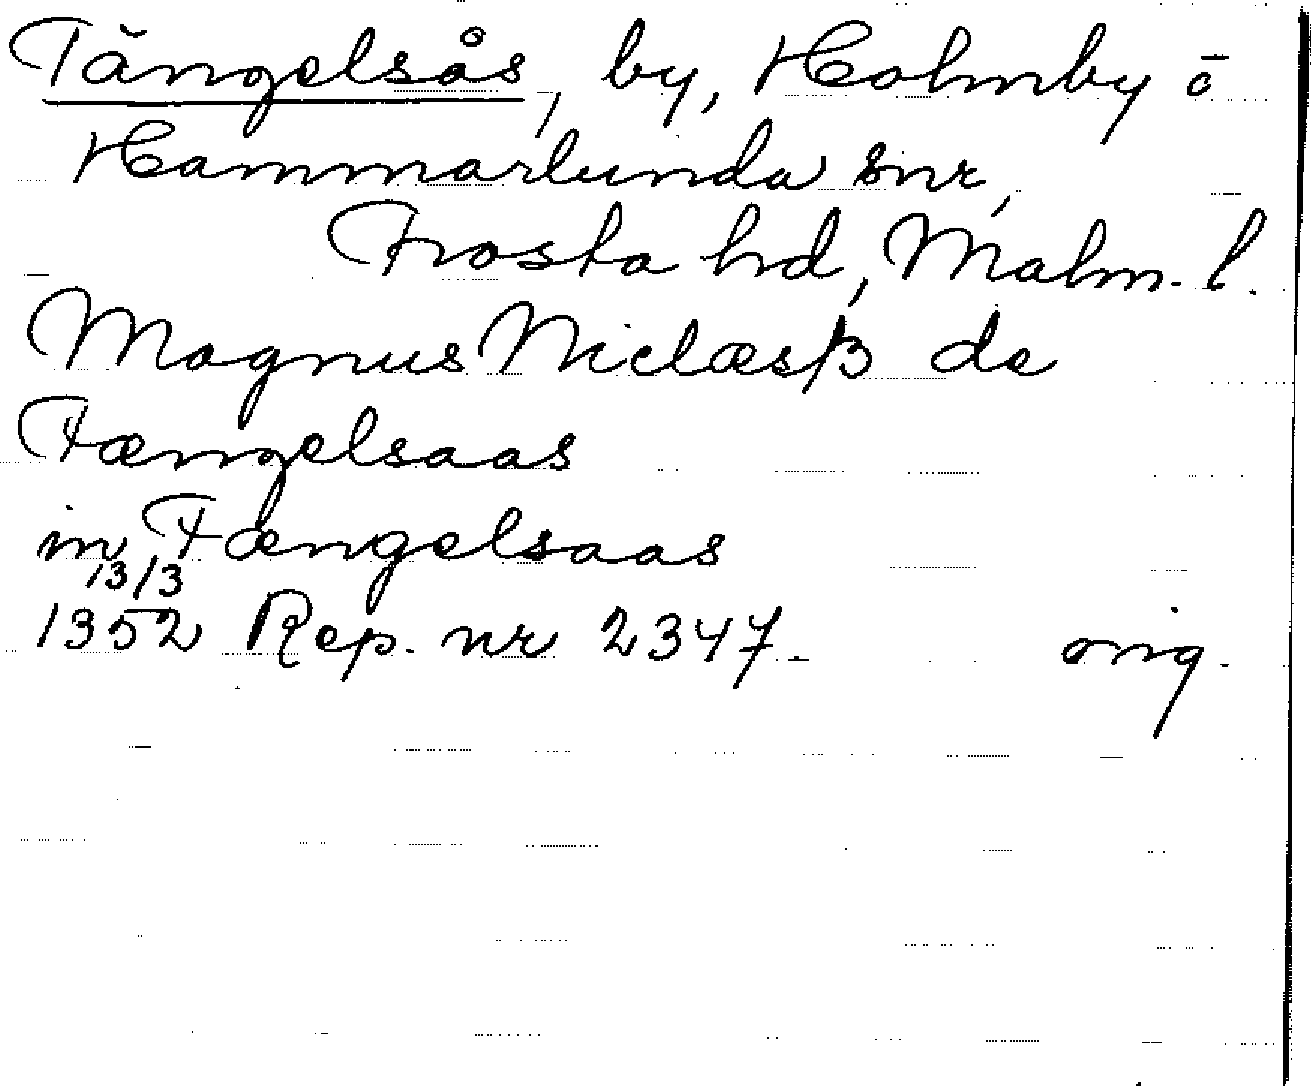 Tängelsås, by, Holmby o
Hammarlunda snr,
Frosta hd, Malm. l.
Magnus Niclæsß de
Tængelsaas
in Tængelsaas
13/3
1352 Rep. nr 2347. orig.